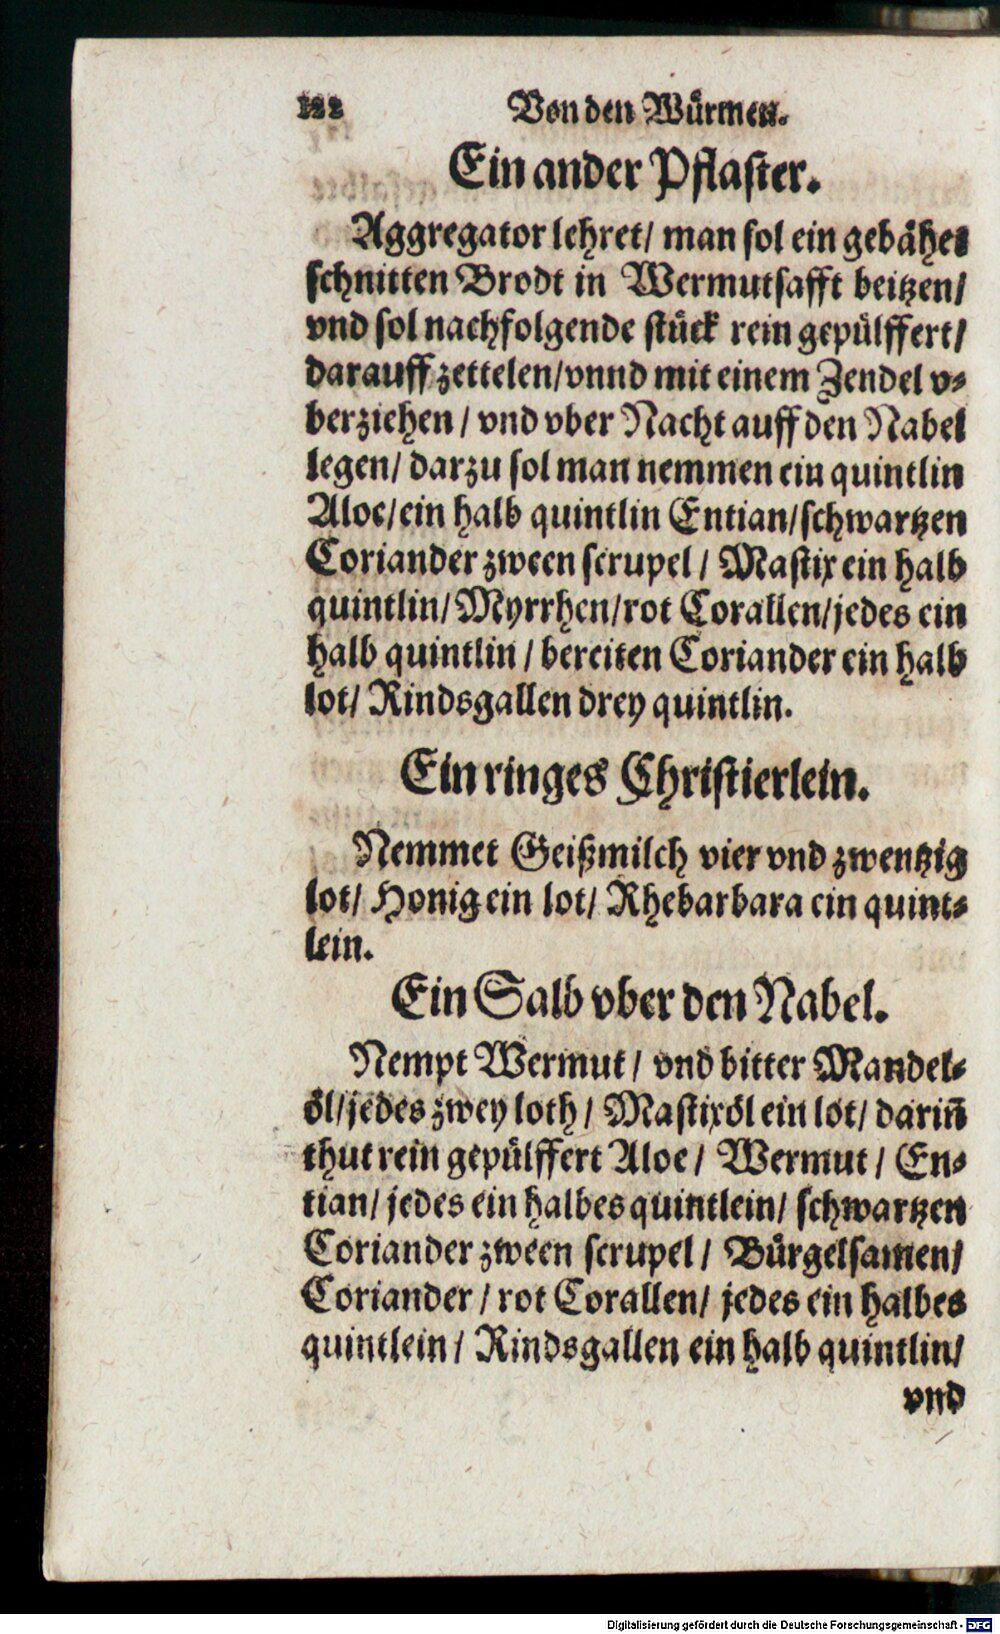 122 Von den Würmen.
Ein ander Pflaster.
Aggregator lehret/ man sol ein gebähes
schnitten Brodt in Wermutsafft beitzen/
vnd sol nachfolgende stück rein gepülffert/
darauff zettelen/vnnd mit einem Zendel v-
berziehen / vnd vber Nacht auff den Nabel
legen/ darzu sol man nemmen ein quintlin
Aloe/ein halb quintlin Entian/schwartzen
Coriander zween scrupel / Mastix ein halb
quintlin/ Myrrhen/rot Corallen/jedes ein
halb quintlin / bereiten Coriander ein halb
lot/ Rindsgallen drey quintlin.
Ein ringes Christierlein.
Nemmet Geißmilch vier vnd zwentzig
lot/ Honig ein lot/ Rhebarbara ein quint-
lein.
Ein Salb vber den Nabel.
Nempt Wermut / vnd bitter Mandel-
öl/jedes zwey loth / Mastixöl ein lot/ dariñ
thut rein gepülffert Aloe / Wermut / En-
tian/ jedes ein halbes quintlein/ schwartzen
Coriander zween scrupel / Bürgelsamen/
Coriander / rot Corallen/ jedes ein halbes
quintlein / Rindsgallen ein halb quintlin/
vnd
Digitalisierung gefördert durch die Deutsche Forschungsgemeinschaft - DFG